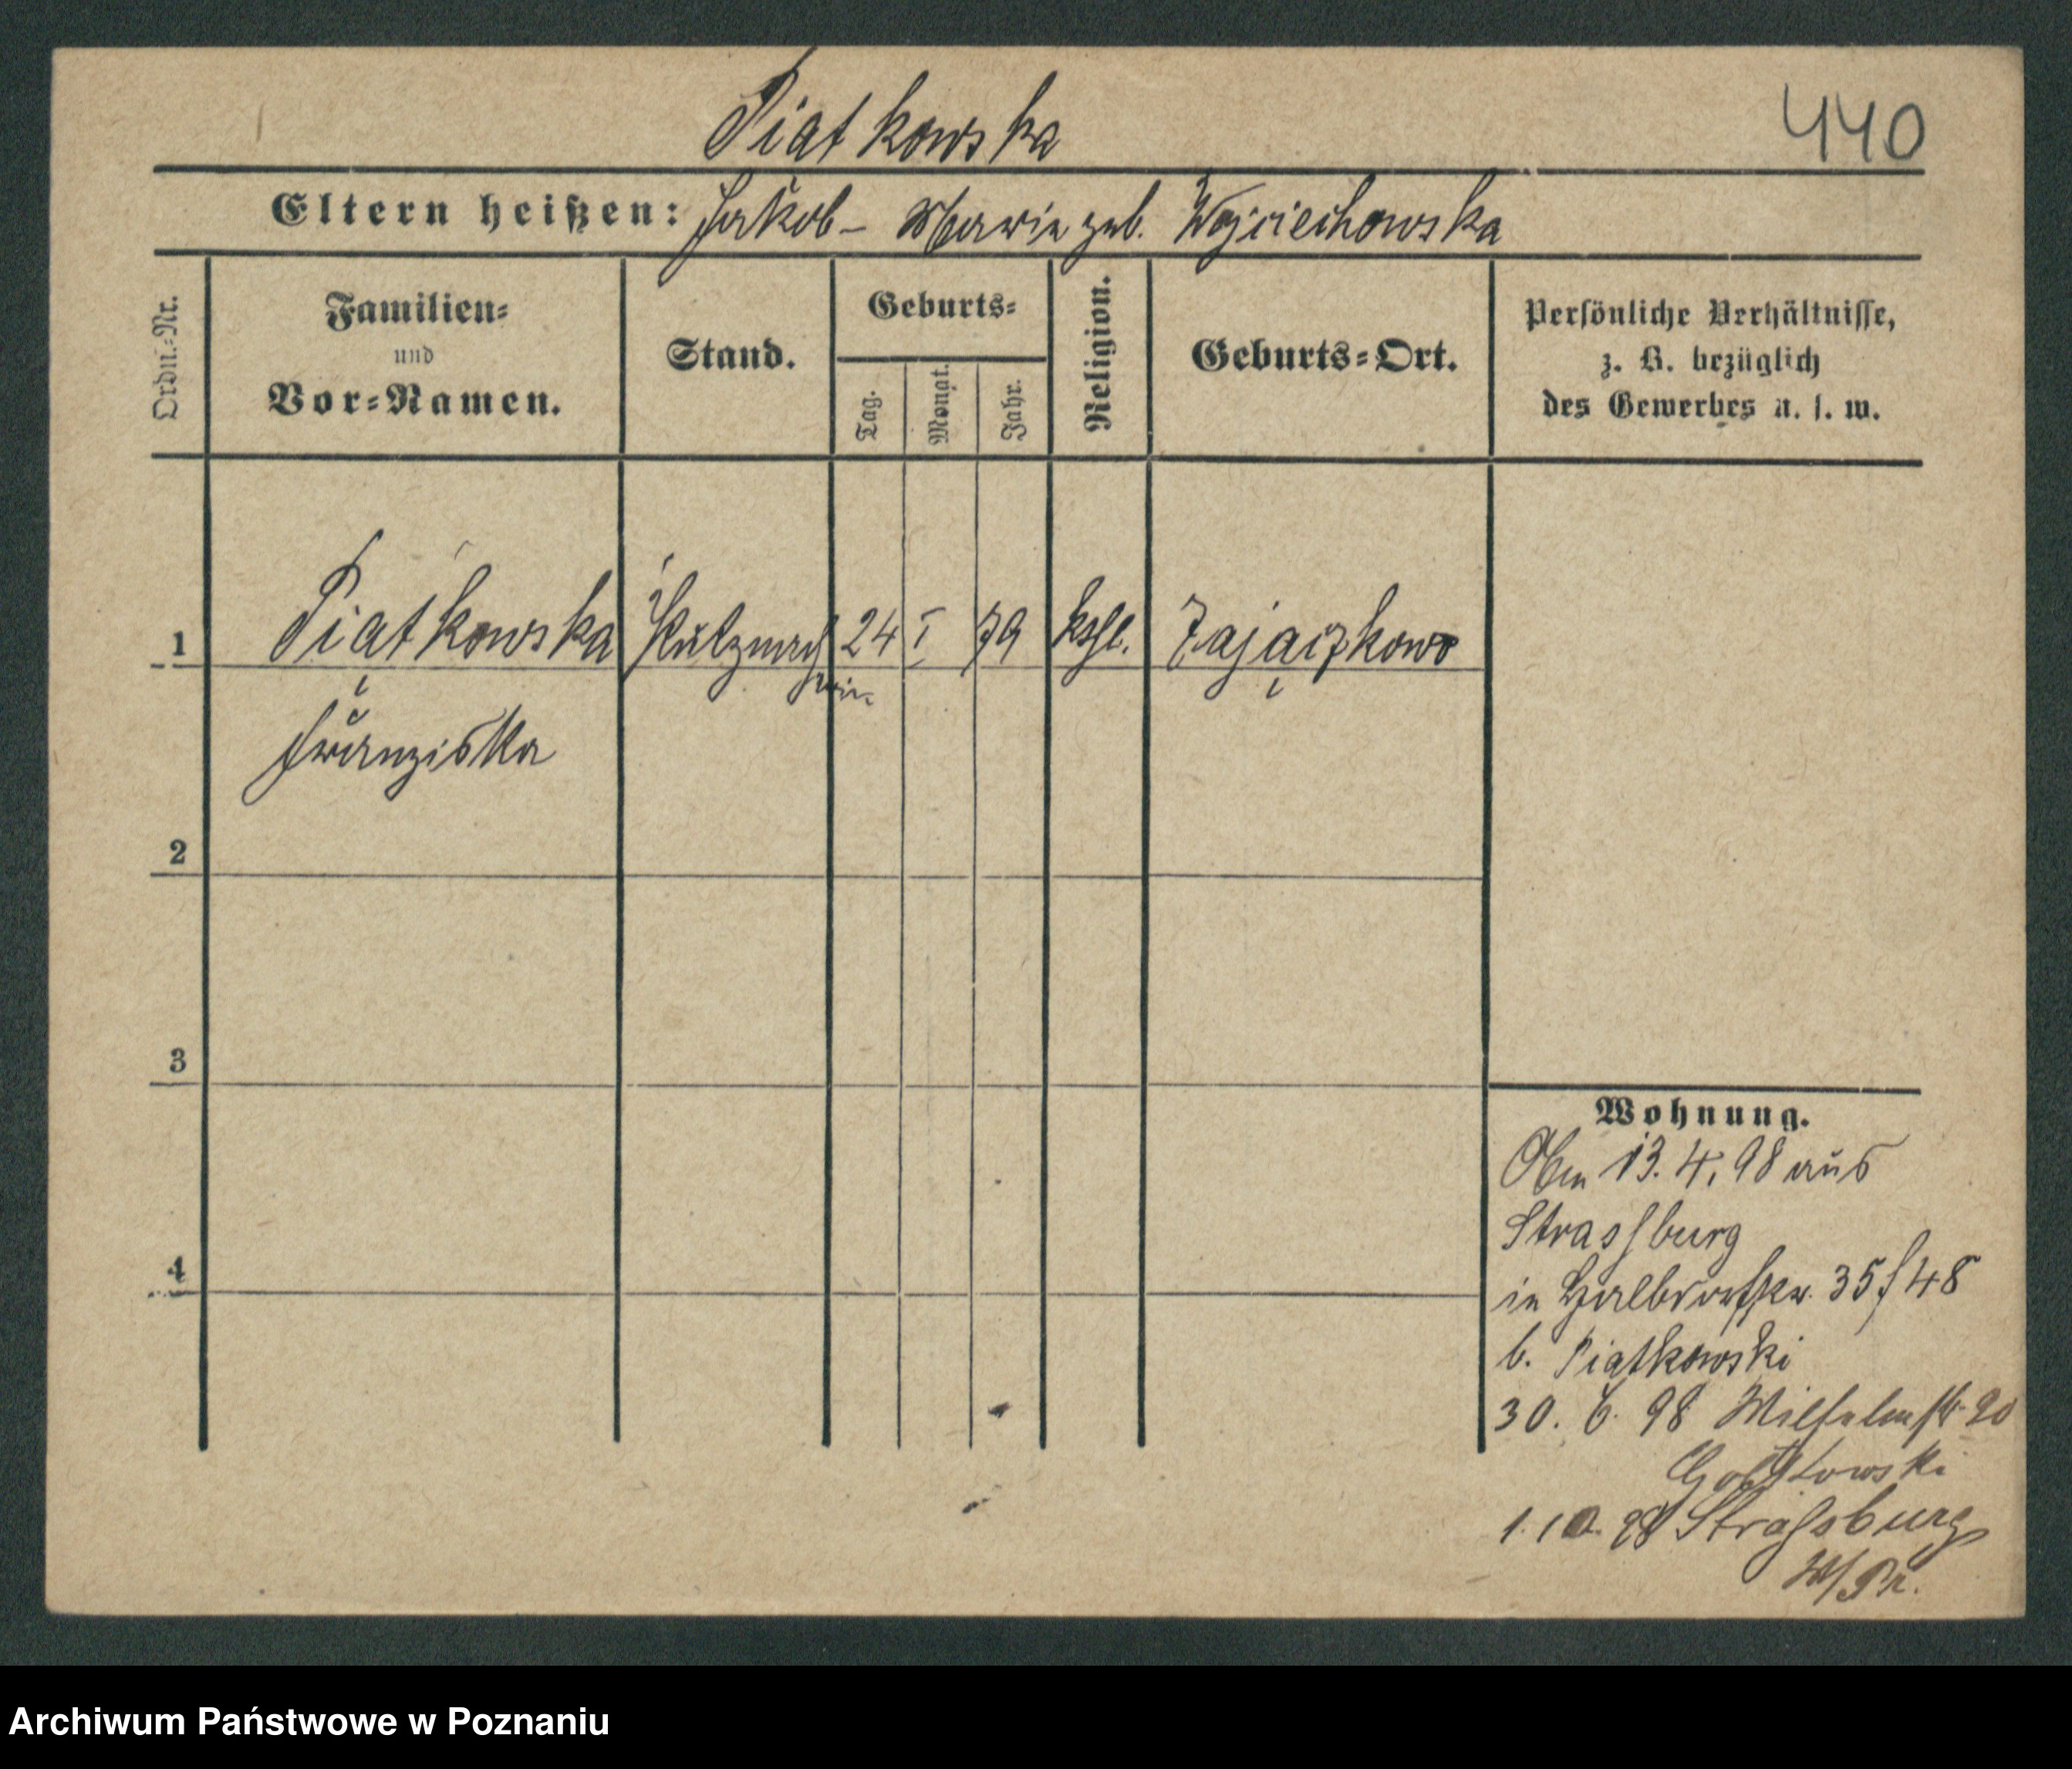 Piatkowska
440
Eltern heißen: Jakob – Marie geb. Wojciechowska
Ordn.-Nr.
Familien-
und
Vor-Namen.
Stand.
Geburts-
Tag.
Monat.
Jahr.
Religion.
Geburts-Ort.
Persönliche Verhältnisse,
z. B. bezüglich
des Gewerbes u. s. w.
1
Piątkowska
Putzmach
24
I
79
kath.
Zajączkowo
erin
Franziska
2
3
4
Wohnung.
13. 4. 98 aus
Strassburg
in Halbdorfstr. 35/48
b. Piatkowski
30. 6. 98 Wilhelmstr 20
1.10. 98 Straßburg
W/Pr.